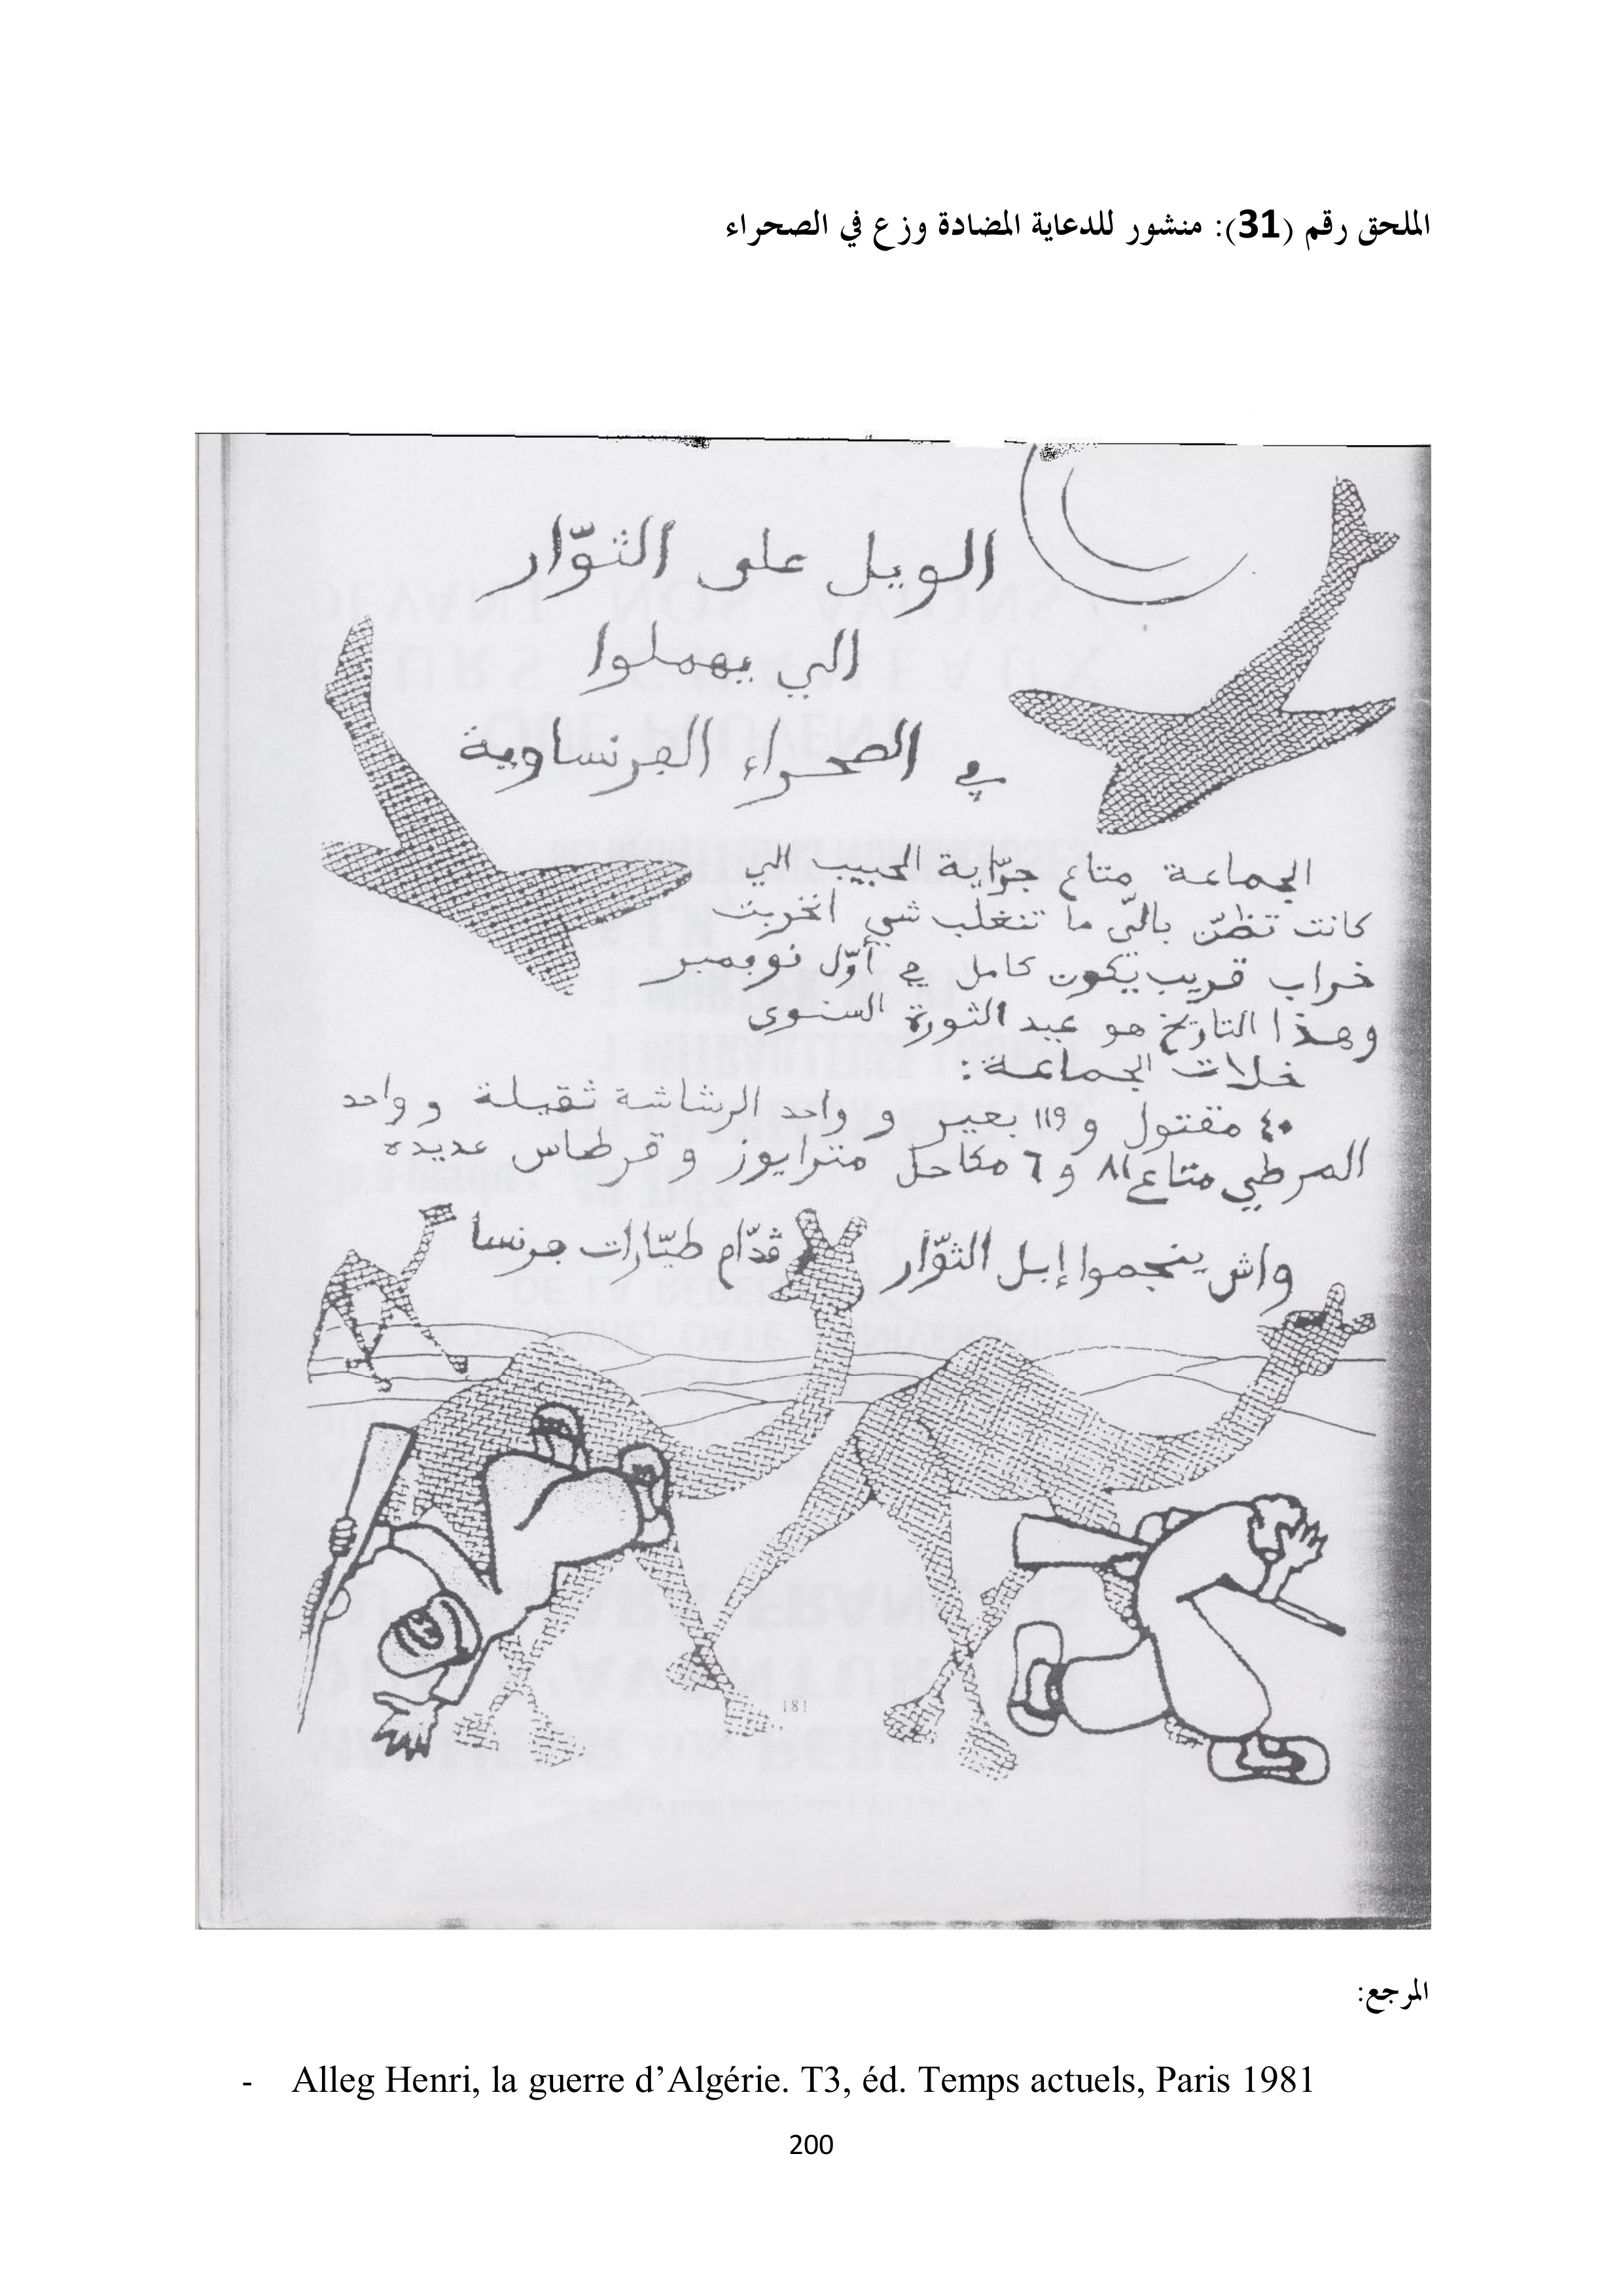 الملحق رقم (31): منشور للدعاية المضادة وزع في الصحراء
الويل على الثوّار
الي يهملوا
في الصحراء الفرنساوية
الجماعة متاع جرّاية الحبيب الي
كانت تظنّ باللّي ما تنغلب شي اتخربت
خراب قريب يكون كامل في أوّل نوفمبر
وهذا التاريخ هو عيد الثورة السنوى
خلات الجماعة:
٤٠ مقتول و 119 بعير و واحد الرشاشة ثقيلة و واحد
المرطي متاع ٨١ و 6 مكاحل مترايوز و قرطاس عديدة
واش ينجموا إبل الثوّار قدّام طيّارات فرنسا
181
المرجع:
- Alleg Henri, la guerre d’Algérie. T3, éd. Temps actuels, Paris 1981
200